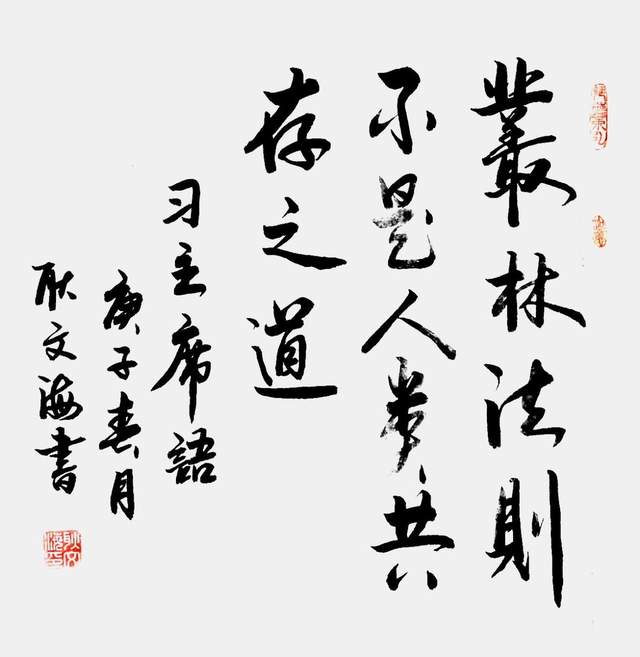 叢林法則
不是人类共
存之道
习主席語
庚子春月
耿文海書